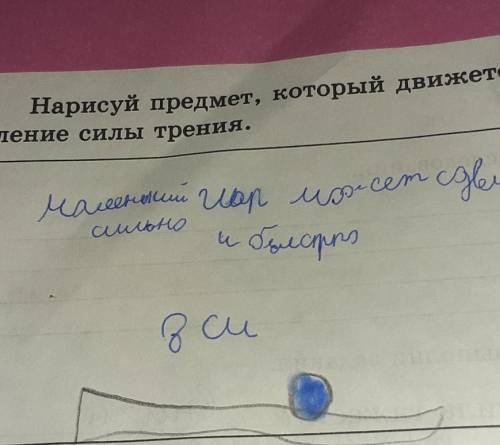 Нарисуй предмет, который движет
ление силы трения.
Маленький шар может сдви
сильно и быстро